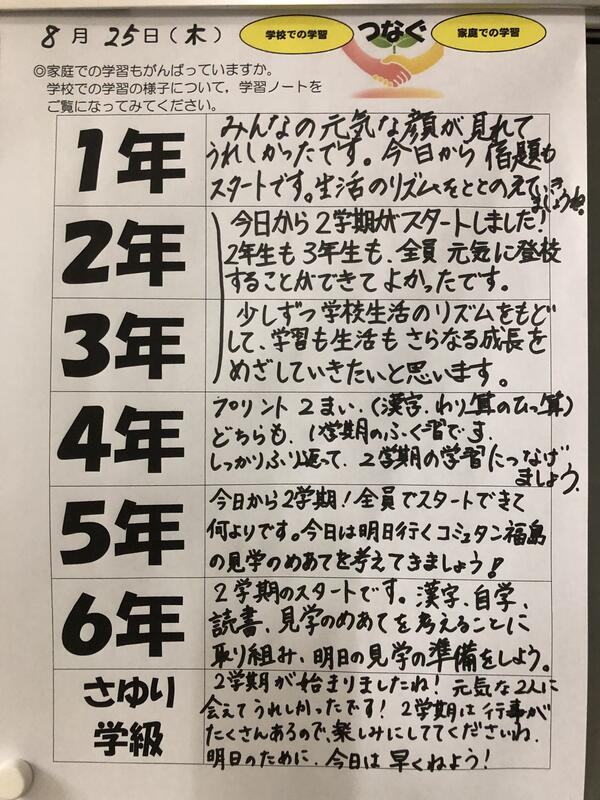 8月25日(木)
学校での学習
つなぐ
家庭での学習
◎家庭での学習もがんばっていますか。
学校での学習の様子について,学習ノートを
ご覧になってみてください。
1年
みんなの元気な顔が見れて
うれしかったです。今日から宿題も
スタートです。生活のリズムをととのえていき
ましょうね。
2年
今日から2学期がスタートしました!
2年生も3年生も、全員元気に登校
することができてよかったです。
3年
少しずつ学校生活のリズムをもど
して、学習も生活もさらなる成長を
めざしていきたいと思います。
4年
プリント2まい.(漢字.わり算のひっ算)
どちらも、1学期のふく習です.
しっかりふり返って、2学期の学習につなげ
ましょう.
5年
今日から2学期!全員でスタートできて
何よりです。今日は明日行くコミュタン福島
の見学のめあてを考えてきましょう!
6年
2学期のスタートです。漢字、自学、
読書、見学のめあてを考えることに
取り組み、明日の見学の準備をしよう。
さゆり
学級
2学期が始まりましたね!元気な2人に
会えてうれしかったです!2学期は行事が
たくさんあるので、楽しみにしててくださいね.
明日のために、今日は早くねよう!